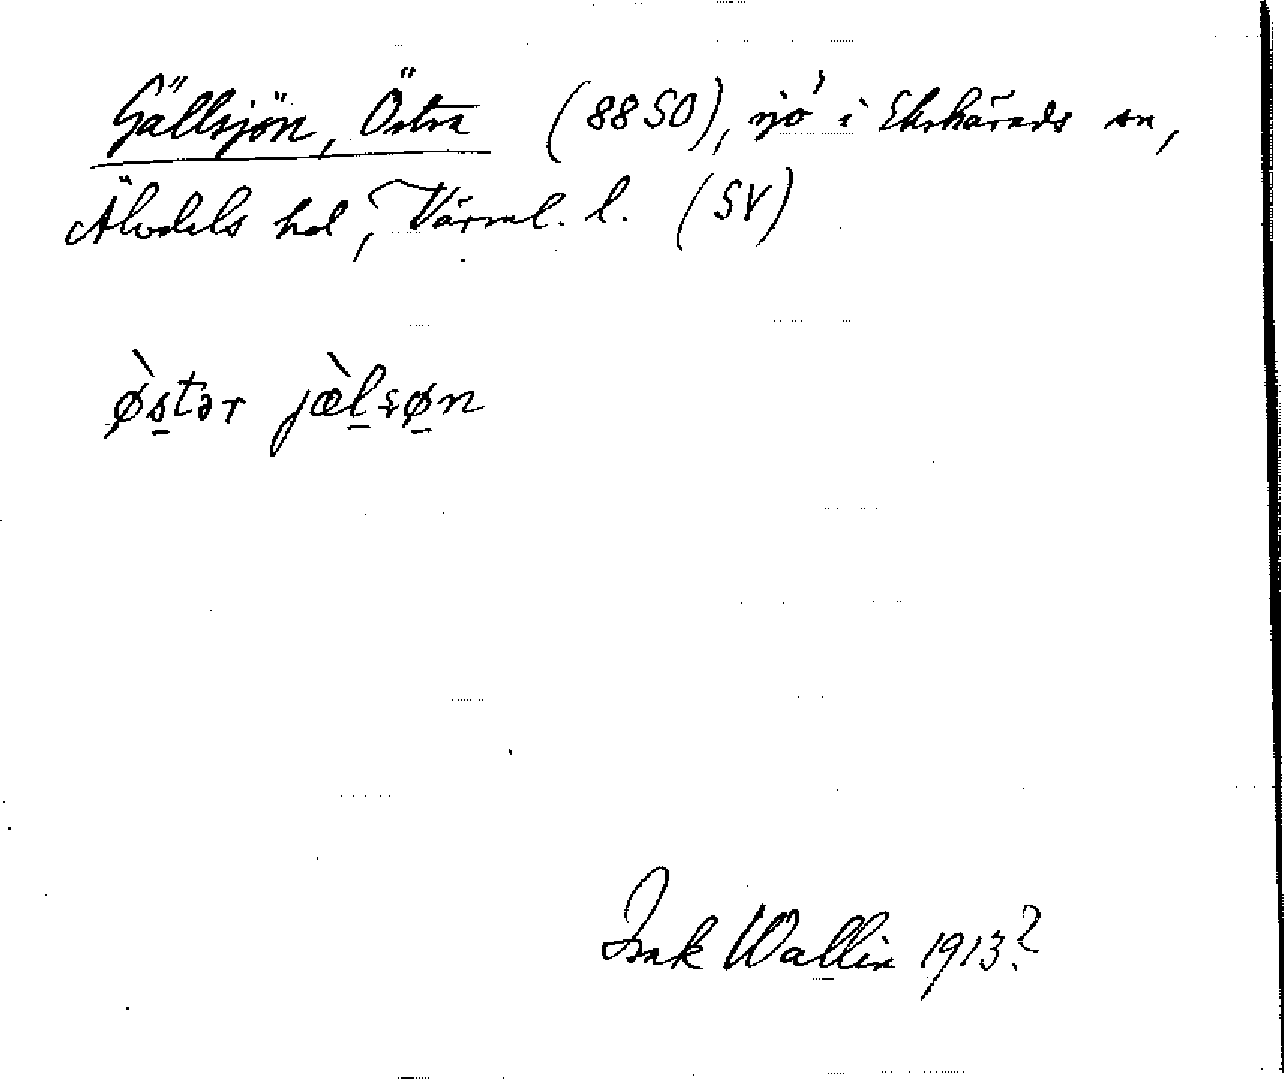 Gällsjön, Östra (88 SO), sjö i Ekshärads sn,
Älvdals hd, Värml. l. (SV)
ø̀stər jæ̀lsøn
Isak Wallin 1913?